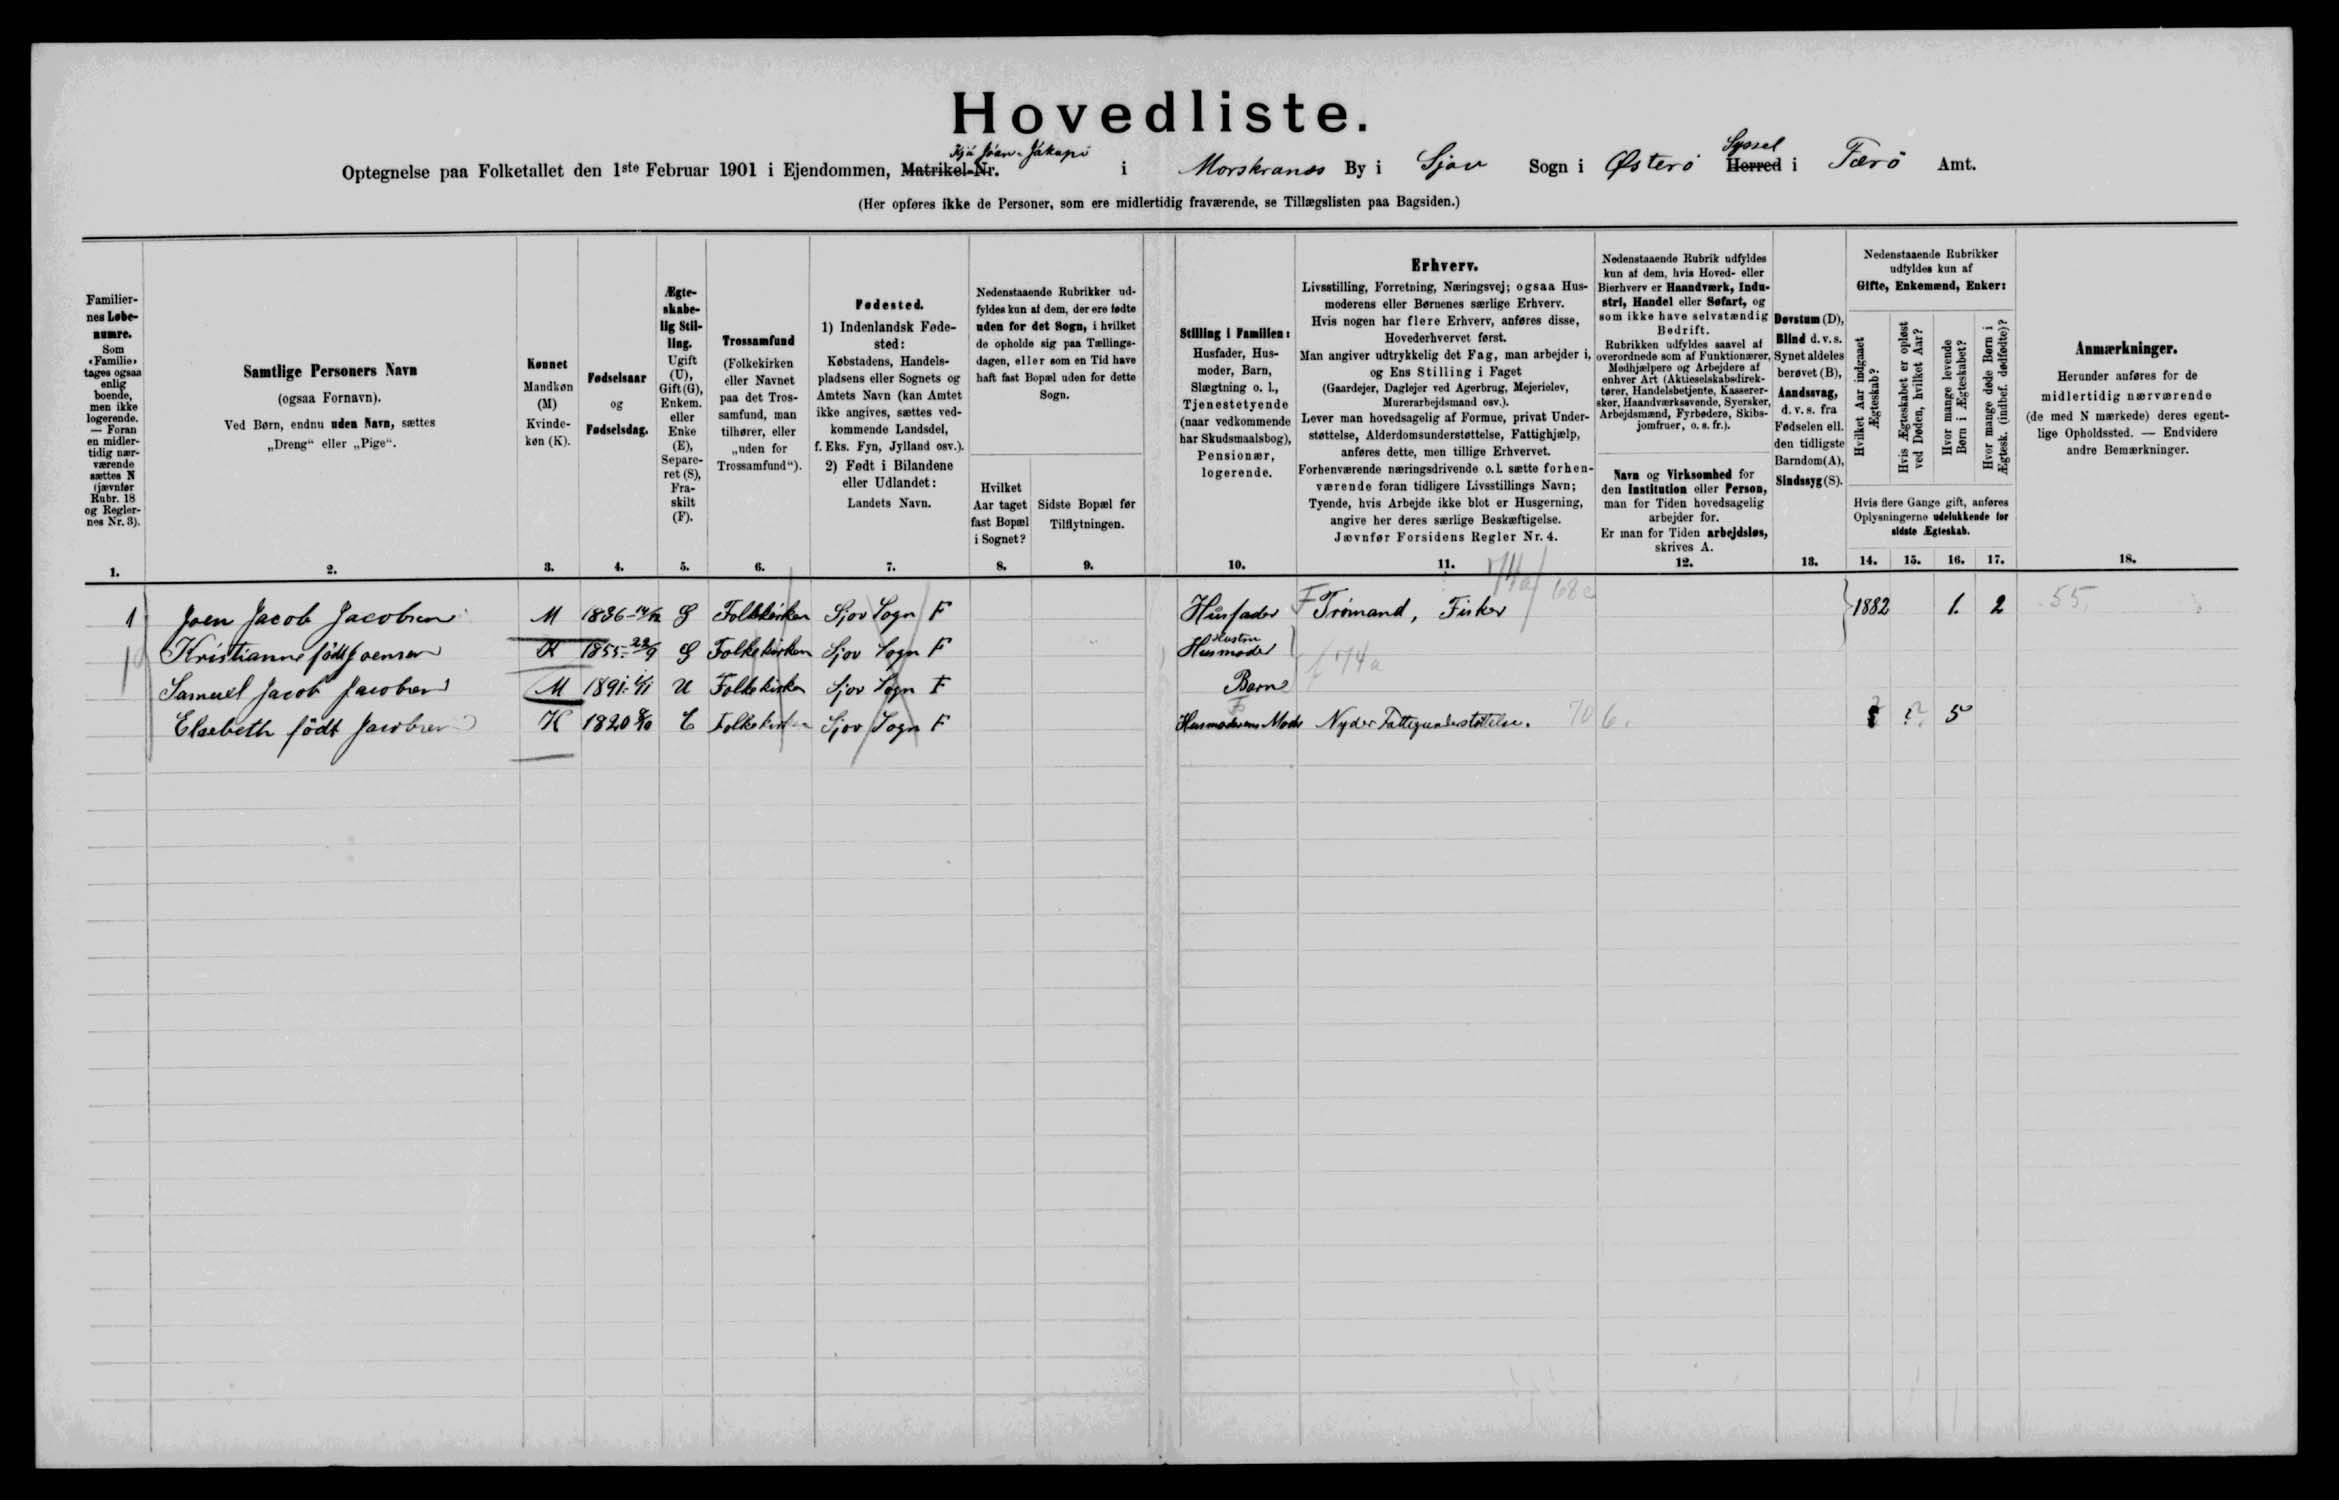 Hovedliste.
Hjá Jóan-Jákupi
Syssel
Optegnelse paa Folketallet den 1ste Februar 1901 i Ejendommen, Matrikel-Nr. i Morskranes By i Sjov Sogn i Østerö Herred i Færö Amt.
(Her opføres ikke de Personer, som ere midlertidig fraværende, se Tillægslisten paa Bagsiden.)
Familier-
nes Løbe-
numre.
Som
«Familie»
tages ogsaa
enlig
boende,
men ikke
logerende.
— Foran
en midler-
tidig nær-
værende
sættes N
(jævnfør
Rubr. 18
og Regler-
nes Nr. 3).
1.
Samtlige Personers Navn
(ogsaa Fornavn).
Ved Børn, endnu uden Navn, sættes
„Dreng“ eller „Pige“.
2.
Kønnet
Mandkøn
(M)
Kvinde-
køn (K).
3.
Fødselsaar
og
Fødselsdag.
4.
Ægte-
skabe-
lig Stil-
ling.
Ugift
(U),
Gift (G),
Enkem.
eller
Enke
(E),
Separe-
ret (S),
Fra-
skilt
(F).
5.
Trossamfund
(Folkekirken
eller Navnet
paa det Tros-
samfund, man
tilhører, eller
„uden for
Trossamfund“).
6.
Fødested.
1) Indenlandsk Føde-
sted:
Købstadens, Handels-
pladsens eller Sognets og
Amtets Navn (kan Amtet
ikke angives, sættes ved-
kommende Landsdel,
f. Eks. Fyn, Jylland osv.).
2) Født i Bilandene
eller Udlandet:
Landets Navn.
7.
Nedenstaaende Rubrikker ud-
fyldes kun af dem, der ere fødte
uden for det Sogn, i hvilket
de opholde sig paa Tællings-
dagen, eller som en Tid have
haft fast Bopæl uden for dette
Sogn.
Hvilket
Aar taget
fast Bopæl
i Sognet?
8.
Sidste Bopæl før
Tilflytningen.
9.
Stilling i Familien:
Husfader, Hus-
moder, Barn,
Slægtning o. l.,
Tjenestetyende
(naar vedkommende
har Skudsmaalsbog),
Pensionær,
logerende.
10.
Erhverv.
Livsstilling, Forretning, Næringsvej; ogsaa Hus-
moderens eller Børnenes særlige Erhverv.
Hvis nogen har flere Erhverv, anføres disse,
Hovederhvervet først.
Man angiver udtrykkelig det Fag, man arbejder i,
og Ens Stilling i Faget
(Gaardejer, Daglejer ved Agerbrug, Mejerielev,
Murerarbejdsmand osv.).
Lever man hovedsagelig af Formue, privat Under-
støttelse, Alderdomsunderstøttelse, Fattighjælp,
anføres dette, men tillige Erhvervet.
Forhenværende næringsdrivende o. l. sætte forhen-
værende foran tidligere Livsstillings Navn;
Tyende, hvis Arbejde ikke blot er Husgerning,
angive her deres særlige Beskæftigelse.
Jævnfør Forsidens Regler Nr. 4.
11.
Nedenstaaende Rubrik udfyldes
kun af dem, hvis Hoved- eller
Bierhverv er Haandværk, Indu-
stri, Handel eller Søfart, og
som ikke have selvstændig
Bedrift.
Rubrikken udfyldes saavel af
overordnede som af Funktionærer,
Medhjælpere og Arbejdere af
enhver Art (Aktieselskabsdirek-
tører, Handelsbetjente, Kasserer-
sker, Haandværkssvende, Syersker,
Arbejdsmænd, Fyrbødere, Skibs-
jomfruer, o. s. fr.).
Navn og Virksomhed for
den Institution eller Person,
man for Tiden hovedsagelig
arbejder for.
Er man for Tiden arbejdsløs,
skrives A.
12.
Døvstum (D),
Blind d. v. s.
Synet aldeles
berøvet (B),
Aandssvag,
d. v. s. fra
Fødselen ell.
den tidligste
Barndom (A),
Sindssyg (S).
13.
Nedenstaaende Rubrikker
udfyldes kun af
Gifte, Enkemænd, Enker:
Hvilket Aar indgaaet
Ægteskab?
Hvis Ægteskabet er opløst
ved Døden, hvilket Aar?
Hvor mange levende
Børn i Ægteskabet?
Hvor mange døde Børn i
Ægtesk. (indbef. dødfødte)?
Hvis flere Gange gift, anføres
Oplysningerne udelukkende for
sidste Ægteskab.
14. 15. 16. 17.
Anmærkninger.
Herunder anføres for de
midlertidig nærværende
(de med N mærkede) deres egent-
lige Opholdssted. — Endvidere
andre Bemærkninger.
18.
1 Joen Jacob Jacobsen M 1836 G Folkekirken Sjov Sogn F Husfader F Trømand, Fisker 1882 1. 2 55.
Kristianne född Joensen K 1855 G Folkekirken Sjov Sogn F Hustru Husmoder 74a
Samuel Jacob Jacobsen M 1891 U Folkekirken Sjov Sogn F Barn
Elsebeth född Jacobsen K 1820 E Folkekirken Sjov Sogn F Husmoderens Moder Nyder Fattigunderstøttelse. 706. ? ? 5